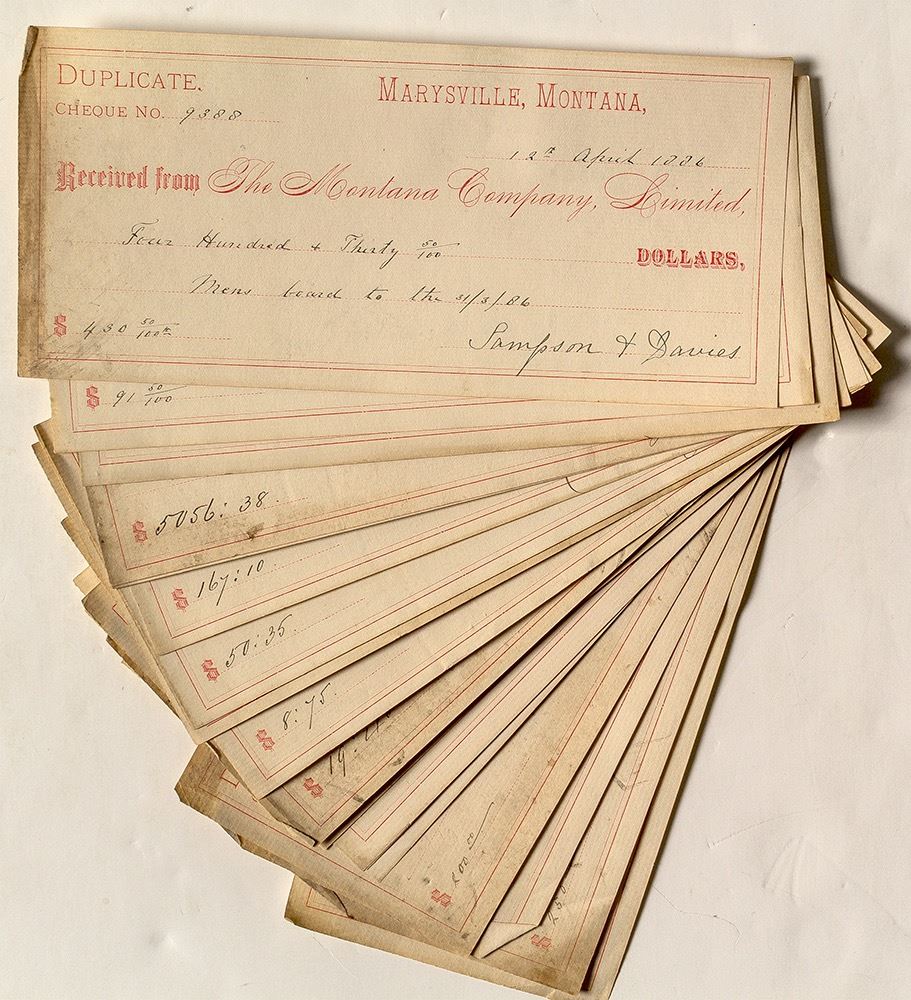 DUPLICATE.
MARYSVILLE, MONTANA,
CHEQUE NO. 9388
12th April 1886
Received from The Montana Company, Limited,
Four Hundred + Thirty 50/100 DOLLARS,
Mens board to the 31/3/86
$ 430 50/100
Sampson & Davies
$ 91 50/100
$ 5056: 38
$ 167: 10
$ 50: 35
$ 8: 75
$ 19
$
$